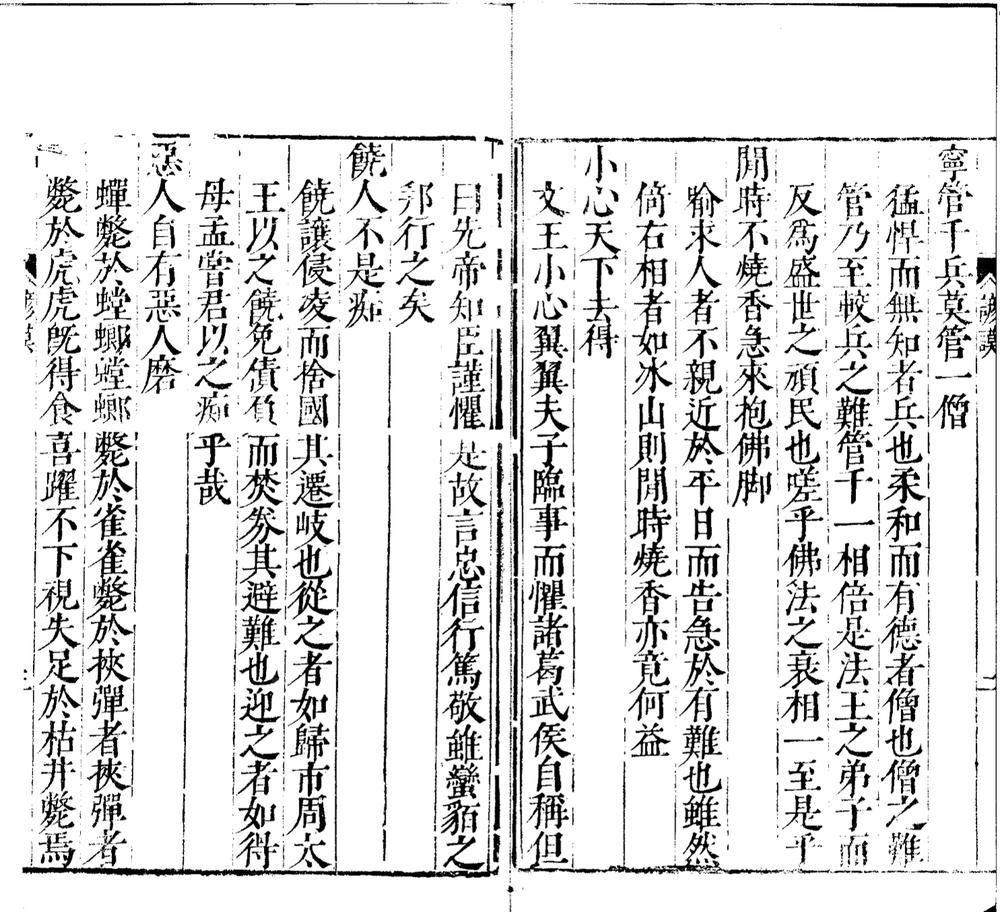 諺謨
寧管千兵莫管一僧
猛悍而無知者兵也柔和而有德者僧也僧之難
管乃至較兵之難管千一相倍是法王之弟子而
反爲盛世之頑民也嗟乎佛法之衰相一至是乎
閒時不燒香急來抱佛脚
喻求人者不親近於平日而告急於有難也雖然
倚右相者如冰山則閒時燒香亦竟何益
小心天下去得
文王小心翼翼夫子臨事而懼諸葛武侯自稱但
曰先帝知臣謹懼是故言忠信行篤敬雖蠻貊之
邦行之矣
饒人不是痴
饒讓侵凌而捨國其遷岐也從之者如歸市周太
王以之饒免債負而焚券其避難也迎之者如得
母孟嘗君以之痴乎哉
惡人自有惡人磨
蟬斃於螳螂螳螂斃於雀雀斃於挾彈者挾彈者
斃於虎虎旣得食喜躍不下視失足於枯井斃焉
諺謨